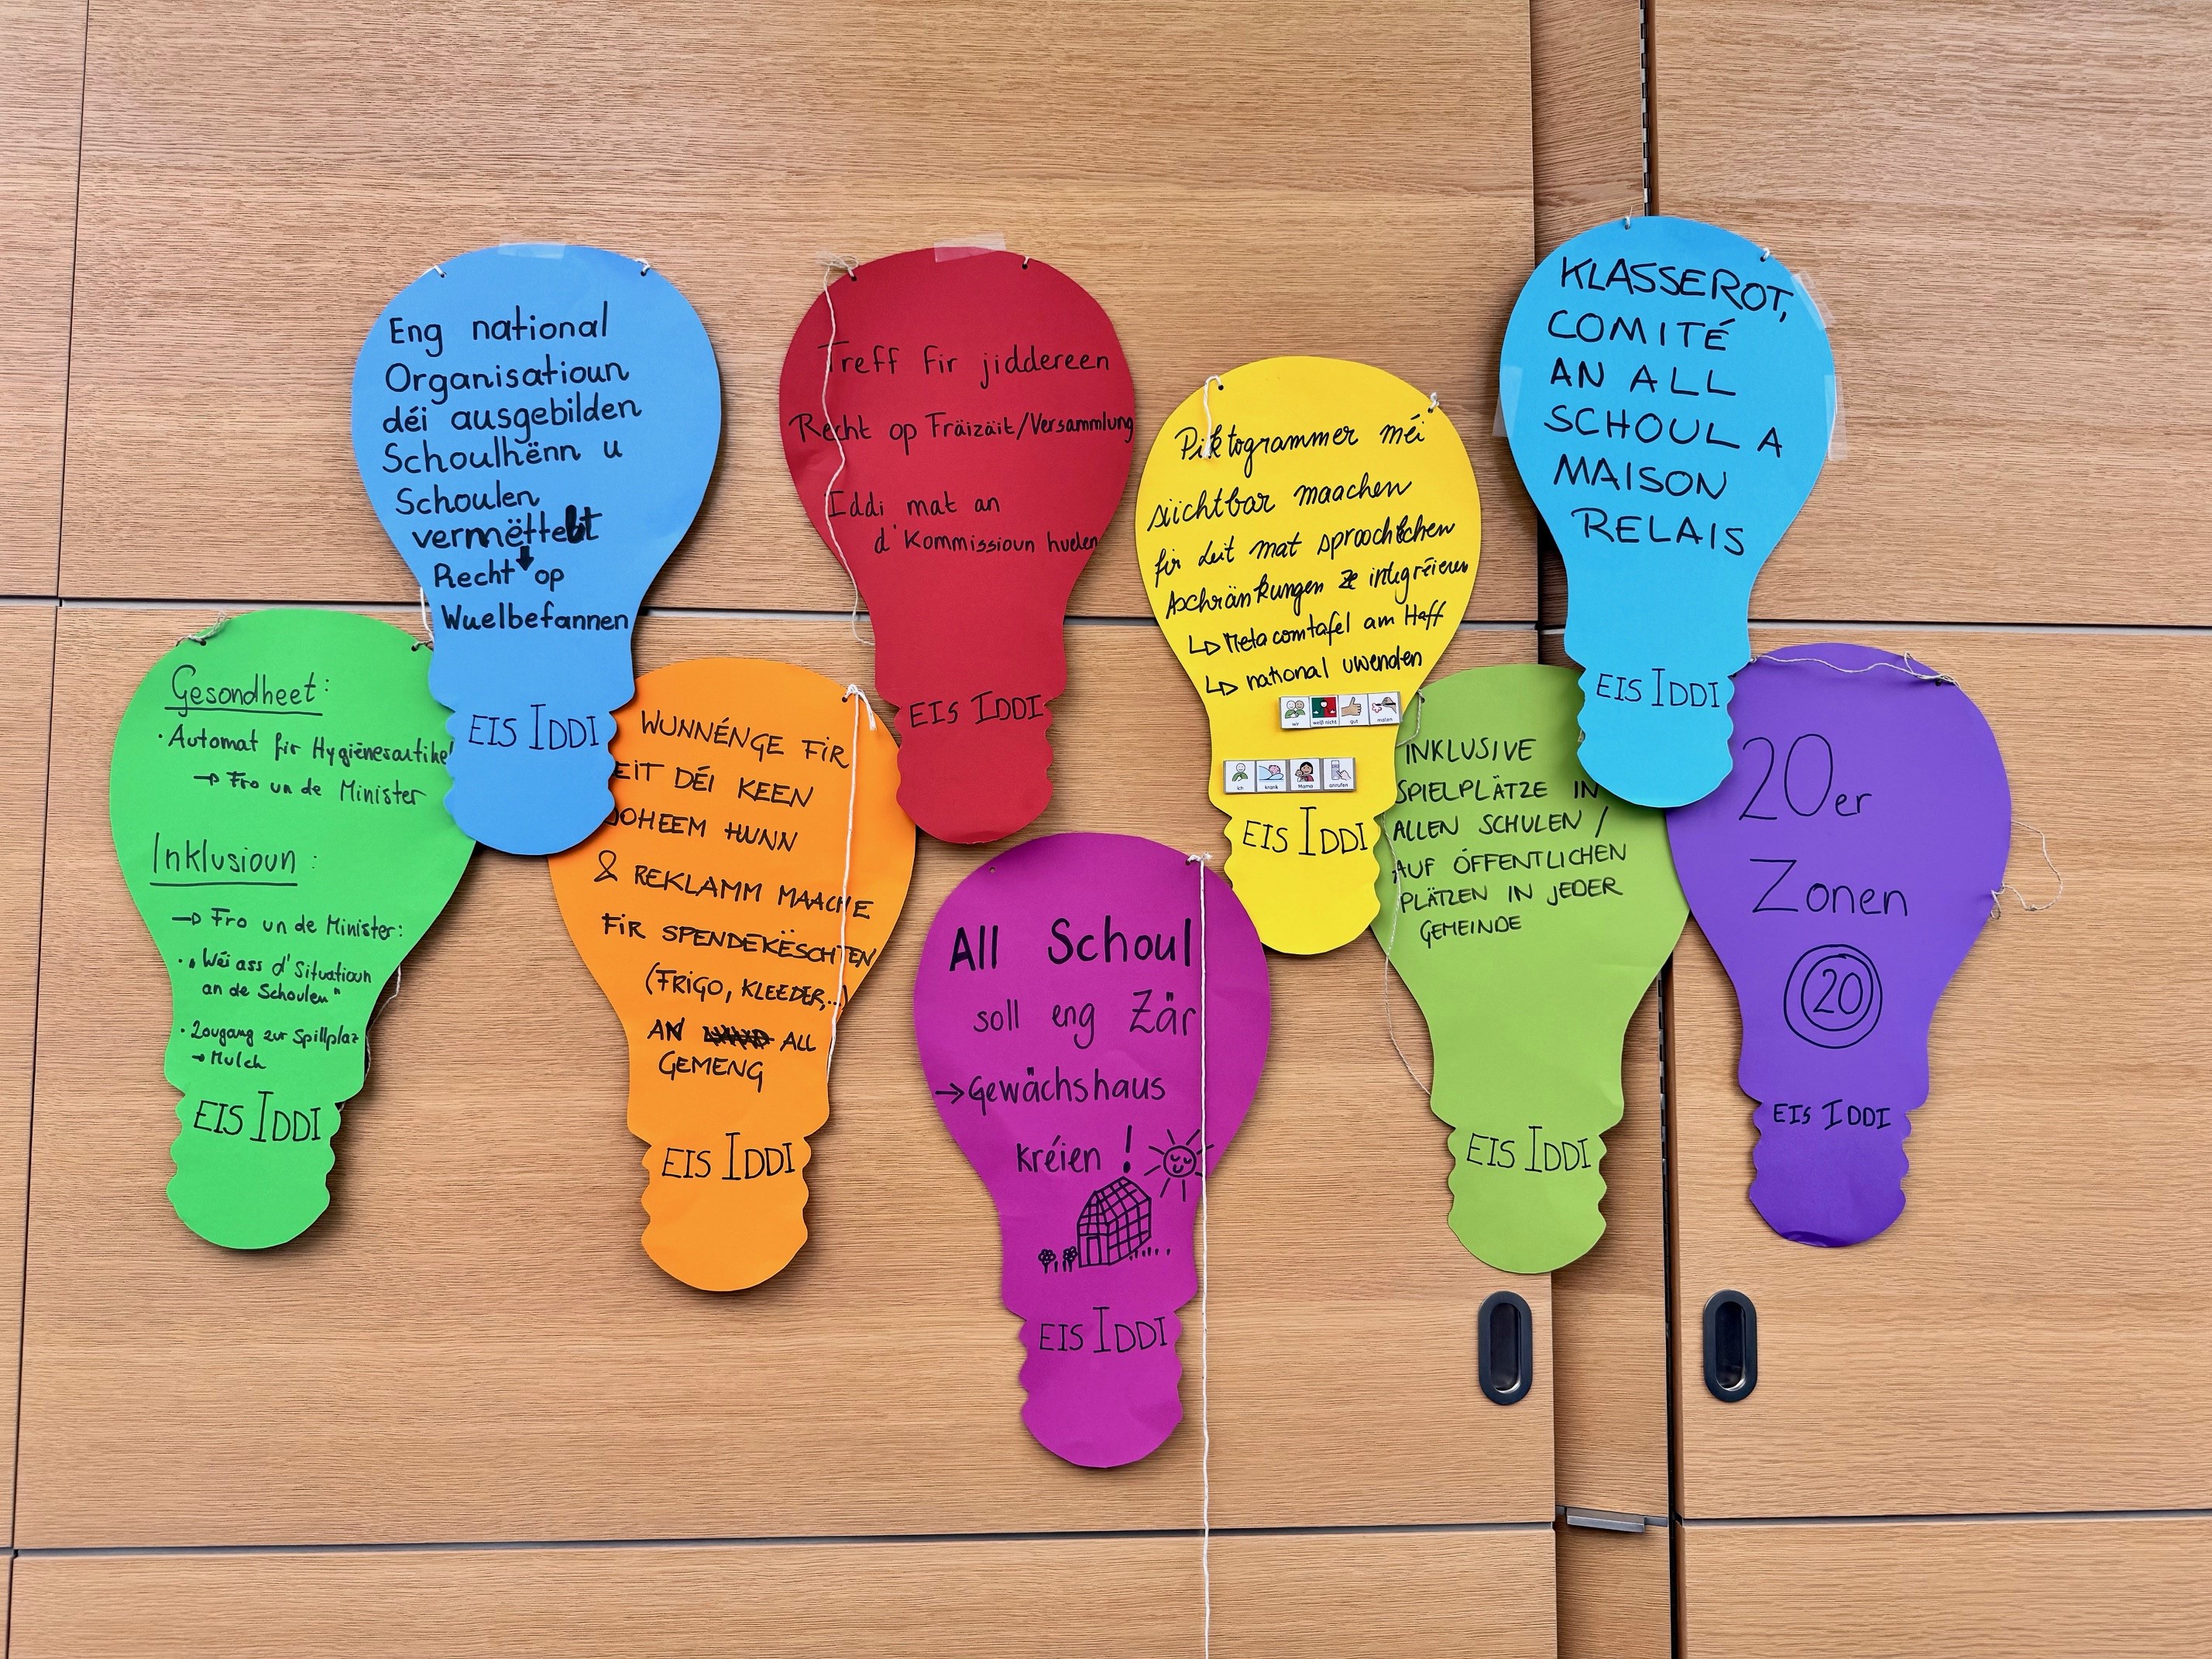 Eng national
Organisatioun
déi ausgebilden
Schoulhënn u
Schoulen
vermëttelt
Recht op
Wuelbefannen
EIS IDDI
Treff fir jiddereen
Recht op Fräizäit/Versammlung
Iddi mat an
d'Kommissioun huelen
EIS IDDI
Piktogrammer méi
siichtbar maachen
fir Leit mat sproochlechen
Aschränkungen ze integréieren
↳ Metacomtafel am Haff
↳ national uwenden
wir weiß nicht gut malen
ich krank Mama anrufen
EIS IDDI
KLASSEROT,
COMITÉ
AN ALL
SCHOUL A
MAISON
RELAIS
EIS IDDI
Gesondheet:
· Automat fir Hygiènesartikel
→ Fro un de Minister
Inklusioun:
→ Fro un de Minister:
· „Wéi ass d'Situatioun
an de Schoulen"
· Zougang zur Spillplaz
→ Mulch
EIS IDDI
WUNNÉNGE FIR
EIT DÉI KEEN
DOHEEM HUNN
& REKLAMM MAACHE
FIR SPENDEKËSCHTEN
(FRIGO, KLEEDER,..)
AN ALL
GEMENG
EIS IDDI
All Schoul
soll eng Zär
→ Gewächshaus
kréien !
EIS IDDI
INKLUSIVE
SPIELPLÄTZE IN
ALLEN SCHULEN /
AUF ÖFFENTLICHEN
PLÄTZEN IN JEDER
GEMEINDE
EIS IDDI
20er
Zonen
20
EIS IDDI